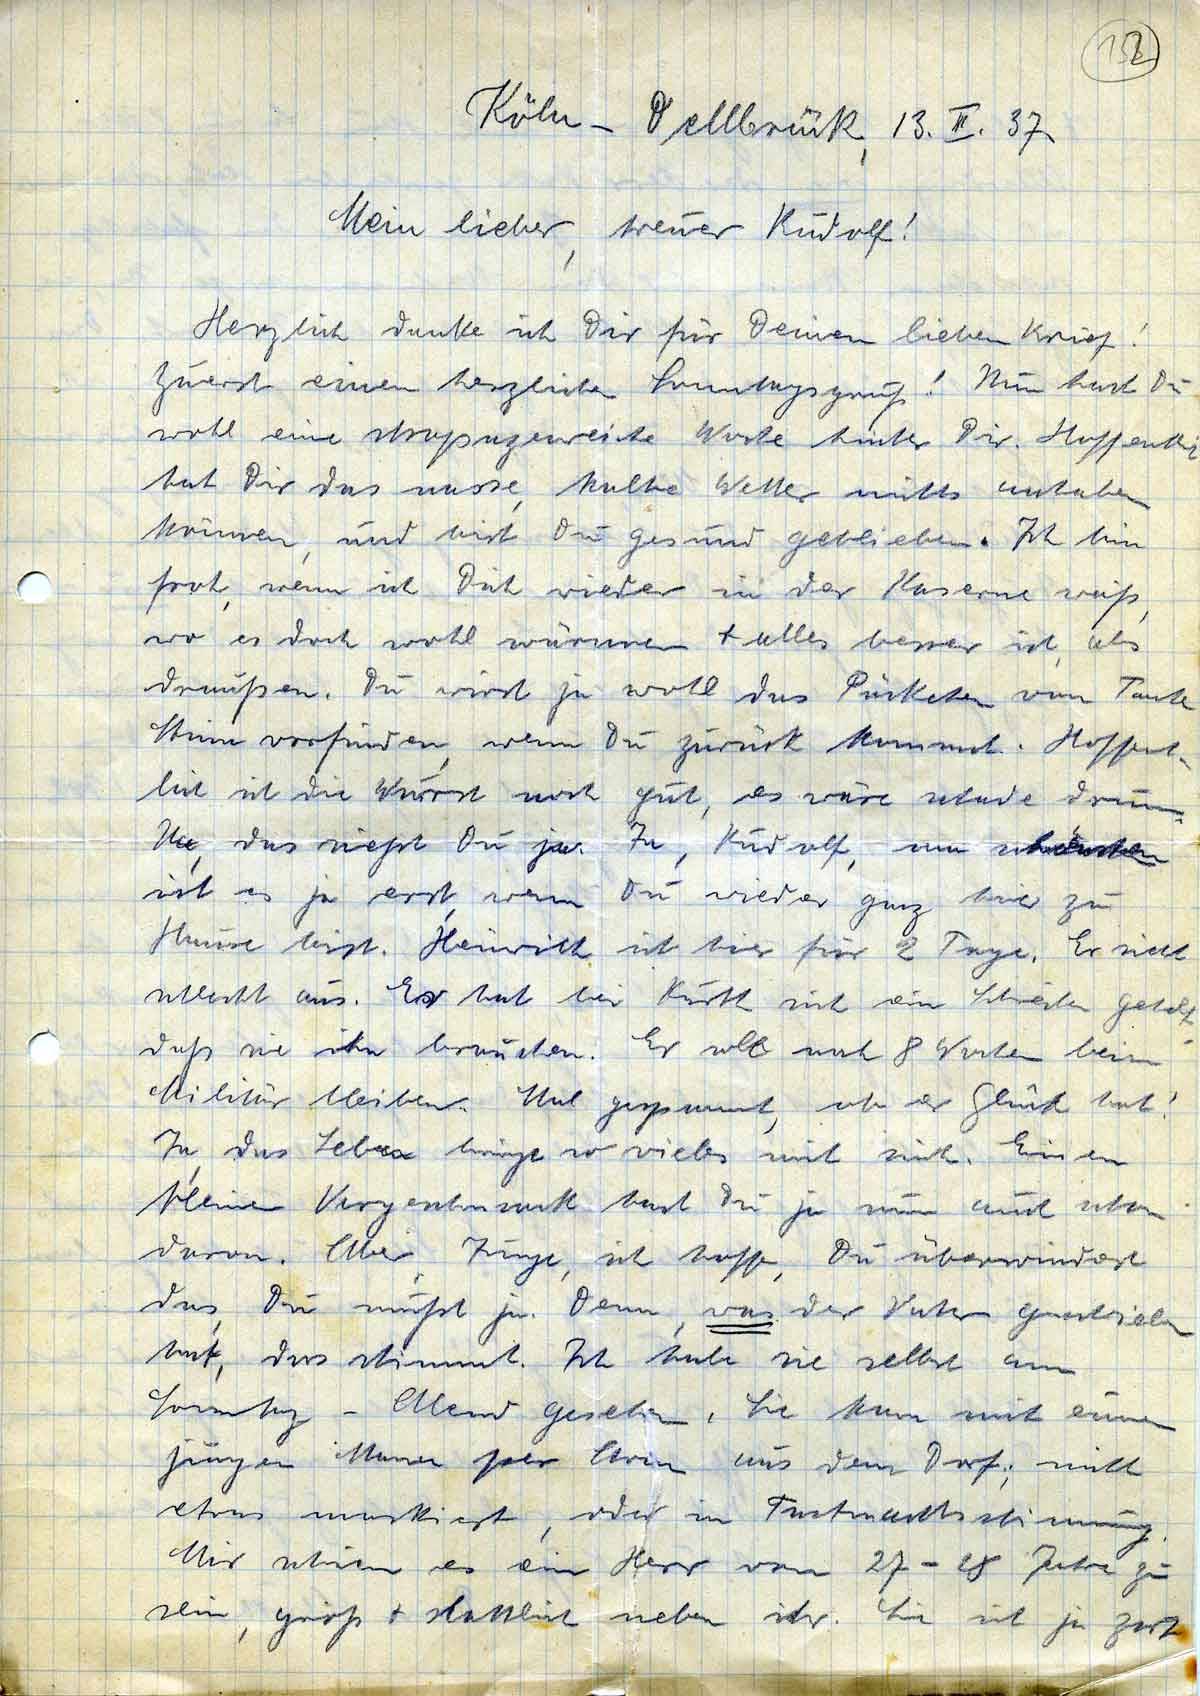 152
Köln – Dellbrück, 13. III. 37.
Mein lieber, treuer Rudolf!
Herzlich danke ich Dir für Deinen lieben Brief!
Zuerst einen herzlichen Sonntagsgruß! Nun hast Du
wohl eine strapazenreiche Woche hinter Dir. Hoffentlich
hat Dir das nasse, kalte Wetter nichts anhaben
können, und bist Du gesund geblieben. Ich bin
froh, wenn ich Dich wieder in der Kaserne weiß,
wo es doch wohl wärmer + alles besser ist, als
draußen. Du wirst ja wohl das Päckchen von Tante
Mina vorfinden, wenn Du zurück kommst. Hoffent-
lich ist die Wurst noch gut, es wäre schade drum.
Na, das siehst Du ja. Ja, Rudolf, am schönsten
ist es ja erst, wenn Du wieder ganz hier zu
Hause bist. Heinrich ist hier für 2 Tage. Er sieht
schlecht aus. Er hat bei sich ein Schreiben geholt
daß sie ihn brauchen. Er soll noch 8 Wochen beim
Militär bleiben. Mal gespannt, ob er Glück hat!
Ja, das Leben bringt so vieles mit sich. Einen
kleinen Vorgeschmack hast Du ja nun auch schon
davon. Aber, Junge, ich hoffe, Du überwindest
das, Du mußt ja. Denn, was der Vater geschrieben
hat, das stimmt. Ich habe sie selbst am
Sonntag – Abend gesehen. Sie kam mit einem
jungen Mann per Arm aus dem Dorf; nicht
etwas maskiert, oder in Fastnachtsstimmung.
Mir schien es ein Herr von 27 – 28 Jahre zu
sein, groß + stattlich neben ihr. Sie ist ja zart